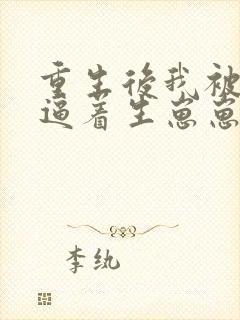 重生后我被
逼着生崽崽
李纨